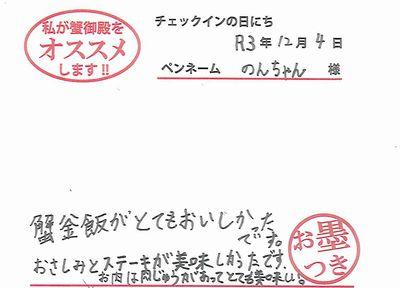 私が蟹御殿を
オススメ
します!!
チェックインの日にち
R3年12月4日
ペンネーム のんちゃん 様
蟹釜飯がとてもおいしかった
です。
おさしみとステーキが美味しかったです。
お肉は肉じゅうがあってとても美味しい!
お墨
つき